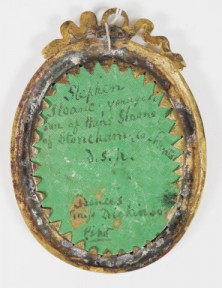 Stephen
Sloane, younger
son of Hans Sloane
of Stoneham, co
d.s.p.
Frances
Miss Dickinson